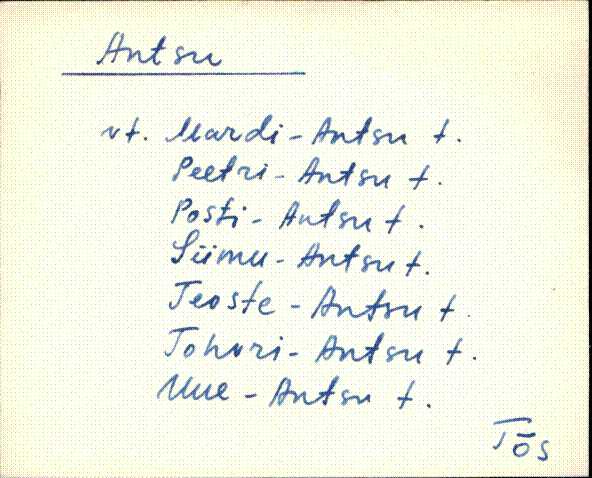 Antsu
vt. Mardi-Antsu t.
Peetri-Antsu t.
Posti-Antsu t.
Siimu-Antsu t.
Teoste-Antsu t.
Tohvri-Antsu t.
Uue-Antsu t.
Tõs